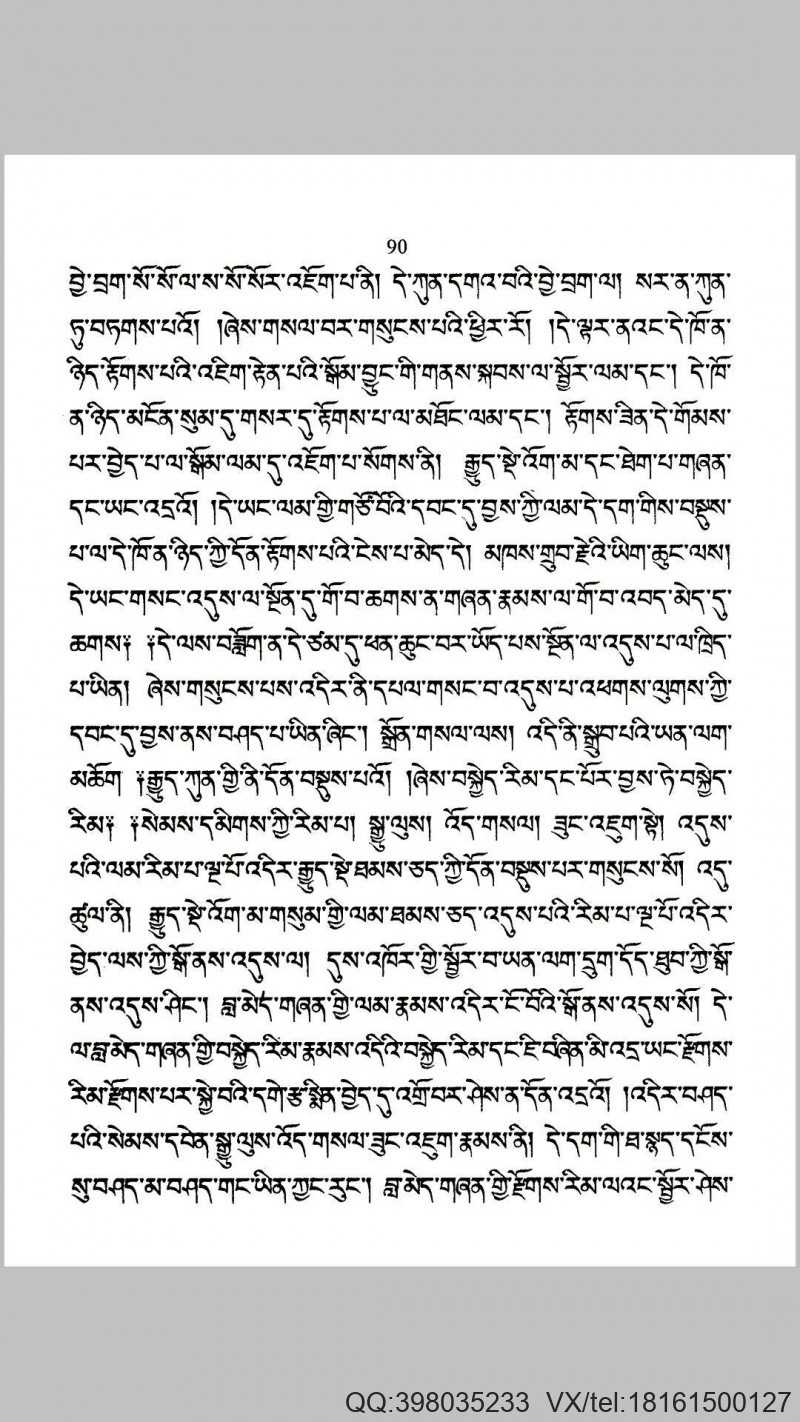 90
བྱེ་བྲག་སོ་སོ་ལ་ས་སོ་སོར་འཇོག་པ་ནི། དེ་ཀུན་དགའ་བའི་བྱེ་བྲག་ལ། སར་ན་ཀུན་
ཏུ་བཏགས་པའོ། །ཞེས་གསལ་བར་གསུངས་པའི་ཕྱིར་རོ། །དེ་ལྟར་ནའང་དེ་ཁོ་ན་
ཉིད་རྟོགས་པའི་འཇིག་རྟེན་པའི་སྒོམ་བྱུང་གི་གནས་སྐབས་ལ་སྦྱོར་ལམ་དང་། དེ་ཁོ་
ན་ཉིད་མངོན་སུམ་དུ་གསར་དུ་རྟོགས་པ་ལ་མཐོང་ལམ་དང་། རྟོགས་ཟིན་དེ་གོམས་
པར་བྱེད་པ་ལ་སྒོམ་ལམ་དུ་འཇོག་པ་སོགས་ནི། རྒྱུད་སྡེ་འོག་མ་དང་ཐེག་པ་གཞན་
དང་ཡང་འདྲའོ། །དེ་ཡང་ལམ་གྱི་གཙོ་བོའི་དབང་དུ་བྱས་ཀྱི་ལམ་དེ་དག་གིས་བསྡུས་
པ་ལ་དེ་ཁོ་ན་ཉིད་ཀྱི་དོན་རྟོགས་པའི་ངེས་པ་མེད་དེ། མཁས་གྲུབ་རྗེའི་ཡིག་ཆུང་ལས།
དེ་ཡང་གསང་འདུས་ལ་སྔོན་དུ་གོ་བ་ཆགས་ན་གཞན་རྣམས་ལ་གོ་བ་འབད་མེད་དུ་
ཆགས༔ ༔དེ་ལས་བཟློག་ན་དེ་ཙམ་དུ་ཕན་ཆུང་བར་ཡོད་པས་སྔོན་ལ་འདུས་པ་ལ་ཁྲིད་
པ་ཡིན། ཞེས་གསུངས་པས་འདིར་ནི་དཔལ་གསང་བ་འདུས་པ་འཕགས་ལུགས་ཀྱི་
དབང་དུ་བྱས་ནས་བཤད་པ་ཡིན་ཞིང་། སྒྲོན་གསལ་ལས། འདི་ནི་སྒྲུབ་པའི་ཡན་ལག་
མཆོག ༔རྒྱུད་ཀུན་གྱི་ནི་དོན་བསྡུས་པའོ། །ཞེས་བསྐྱེད་རིམ་དང་པོར་བྱས་ཏེ་བསྐྱེད་
རིམ༔ ༔སེམས་དམིགས་ཀྱི་རིམ་པ། སྒྱུ་ལུས། འོད་གསལ། ཟུང་འཇུག་སྟེ། འདུས་
པའི་ལམ་རིམ་པ་ལྔ་པོ་འདིར་རྒྱུད་སྡེ་ཐམས་ཅད་ཀྱི་དོན་བསྡུས་པར་གསུངས་སོ། འདུ་
ཚུལ་ནི། རྒྱུད་སྡེ་འོག་མ་གསུམ་གྱི་ལམ་ཐམས་ཅད་འདུས་པའི་རིམ་པ་ལྔ་པོ་འདིར་
བྱེད་ལས་ཀྱི་སྒོ་ནས་འདུས་ལ། དུས་འཁོར་གྱི་སྦྱོར་བ་ཡན་ལག་དྲུག་དོད་ཐུབ་ཀྱི་སྒོ་
ནས་འདུས་ཤིང་། བླ་མེད་གཞན་གྱི་ལམ་རྣམས་འདིར་ངོ་བོའི་སྒོ་ནས་འདུས་སོ། དེ་
ལ་བླ་མེད་གཞན་གྱི་བསྐྱེད་རིམ་རྣམས་འདིའི་བསྐྱེད་རིམ་དང་ཇི་བཞིན་མི་འདྲ་ཡང་རྫོགས་
རིམ་རྫོགས་པར་སྐྱེ་བའི་དགེ་རྩ་སྨིན་བྱེད་དུ་འགྲོ་བར་ཤེས་ན་དོན་འདྲའོ། །འདིར་བཤད་
པའི་སེམས་དབེན་སྒྱུ་ལུས་འོད་གསལ་ཟུང་འཇུག་རྣམས་ནི། དེ་དག་གི་ཐ་སྙད་དངོས་
སུ་བཤད་མ་བཤད་གང་ཡིན་ཀྱང་རུང་། བླ་མེད་གཞན་གྱི་རྫོགས་རིམ་ལའང་སྦྱོར་ཤེས་
QQ:398035233 VX/tel:18161500127